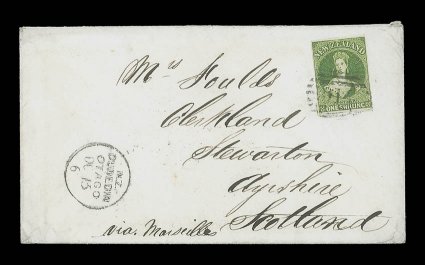 NEW ZEALAND
ONE SHILLING
Mrs Foulds
Clerkland
Stewarton
Ayrshire
Scotland
via Marseilles
N.Z.
DUNEDIN
OTAGO
13
6